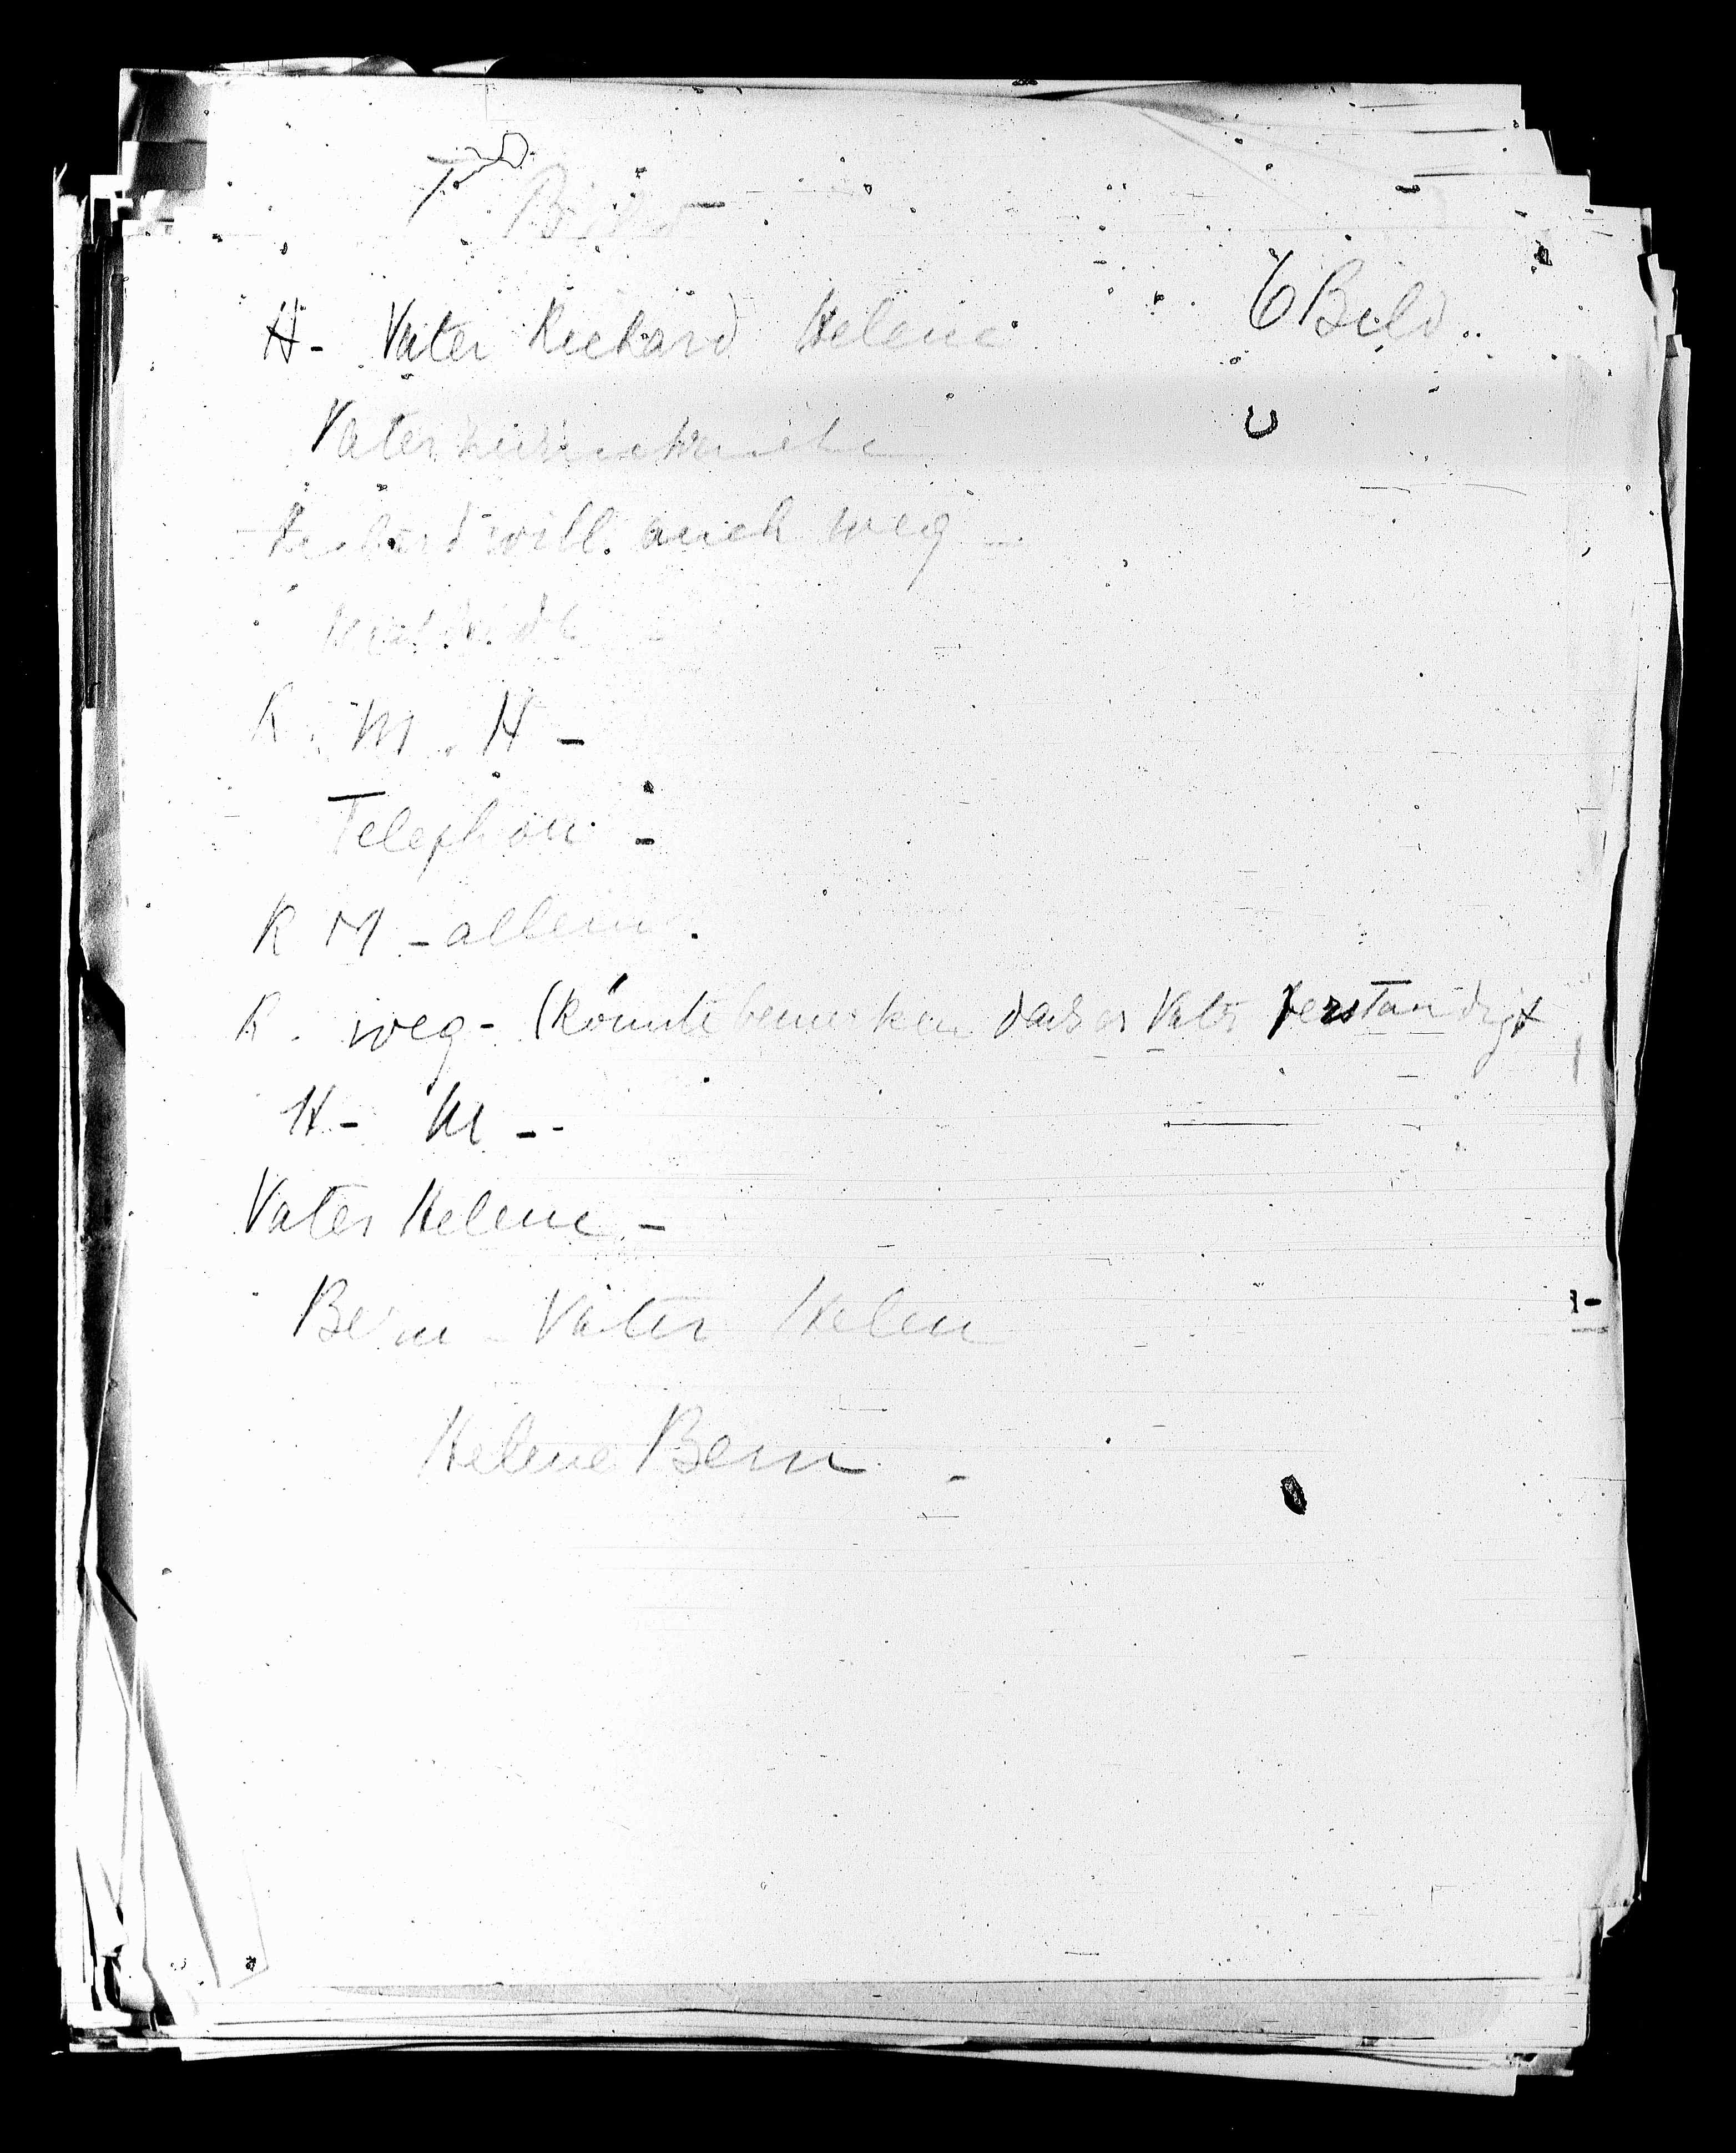 Bild
6 Bild
H- Vater Richard Helene
Vater
Richard will auch weg -
R. M. H -
Telephon -
R M - allein.
R. weg - (könnte bemerken dass er Vater verständigt
H - M --
Vater Helene -
Bern - Vater Helen
Helene Bern -